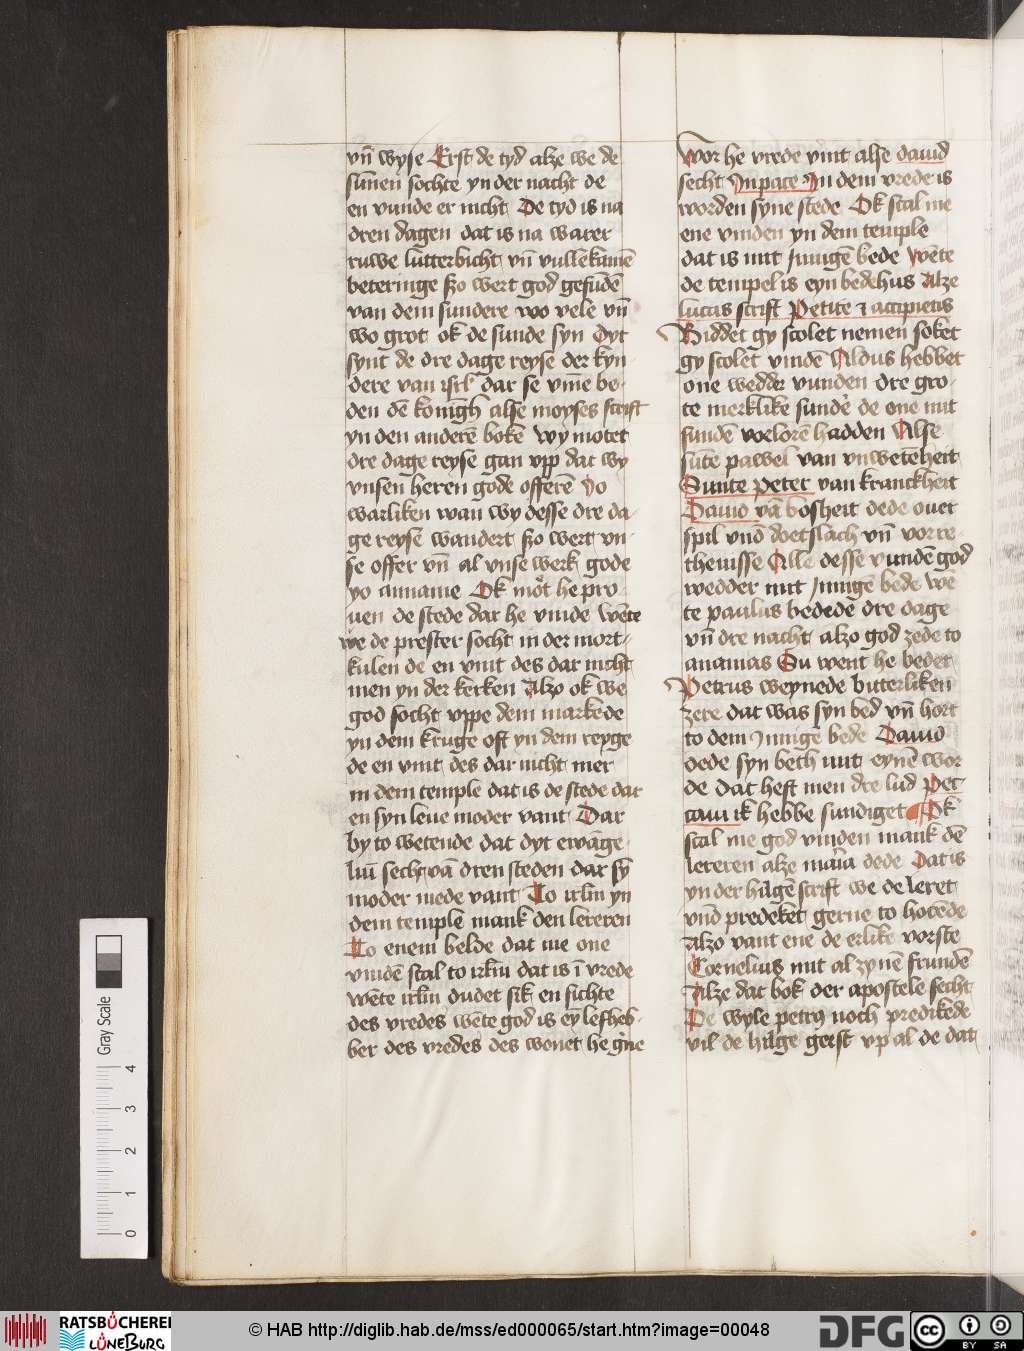 vn̄ wyse Erst de tyd alze we de
sūnen sochte yn der nacht de
en vunde er nicht De tyd is na
dren dagen dat is na warer
ruwe lutterbicht vn̄ vullekamē
beteringe szo wert god gefūdē
van dem sundere wo vele vn̄
wo grot ok de sunde syn Dyt
synt de dre dage reyse der kyn
dere van isrl̄ dar se vm̄e be
den dē konīgh alse moyses scrift
yn den anderē bokē wy motet
dre dage reyse gan vpp dat wy
vnsen heren gode offerē Jo
warliken wan wy desse dre da
ge reyse wandert szo wert vn
se offer vn̄ al vnse werk gode
yo anname Ok mot he pro
uen de stede dar he vinde wēte
we de prester socht in der mort
kulen de en vint des dar nicht
men yn der kerken Alzo ok we
god socht vppe dem markede
yn dem kruge oft yn dem reyge
de en vint des dar nicht mer
in dem temple dat is de stede dar
en syn leue moder vant Dar
by to wetende dat dyt ewāge
liū secht vā dren steden dar sȳ
moder mede vant To irlm̄ yn
dem temple mank den lereren
To enem belde dat me one
vindē scal to irlm̄ dat is ī vrede
wēte irlm̄ dudet sik en sichte
des vredes wēte god is eȳ lefheb
ber des vredes des wonet he gerne
Wor he vrede vint alse dauid
secht In pace In dem vrede is
worden syne stede Ok scal me
ene vinden yn dem temple
dat is mit Innigē bede wēte
de tempel is eyn bedehus Alze
lucas scrift Petite et accipietis
Biddet gy scolet nemen soket
gy scolet vindē Aldus hebbet
one wedder vunden dre gro
te merklike sundere de one mit
sundē vorlorē hadden Alse
sūte pawel van vnwetēheit
Sunte Peter van kranckheit
Dauid vā bosheit dede ouer
spil vnd doetslach vn̄ vorre
thenisse Alle desse vundē god
wedder mit Innigē bede wē
te paulus bedede dre dage
vn̄ dre nacht alzo god zede to
ananias Su went he bedet
Petrus weynede bitterliken
zere dat was syn bed vn̄ hort
to dem Innigē bede Dauid
dede syn beth mit eynē wor
de dat heft men dre lud Pec
caui ik hebbe sundiget Ok
scal me god vinden mank dē
lereren alze maria dede Dat is
yn der hilgē scrift we de leret
vnd predeket gerne to horēde
Alzo vant ene de erlike vorste
Cornelius mit al zynē frundē
Alze dat bok der apostele secht
De wyle petrus noch predikede
vil de hilge geist vp al de dat
Gray Scale
4
3
2
1
0
RATSBÜCHEREI
LÜNEBURG
© HAB http://diglib.hab.de/mss/ed000065/start.htm?image=00048
DFG
cc
BY SA